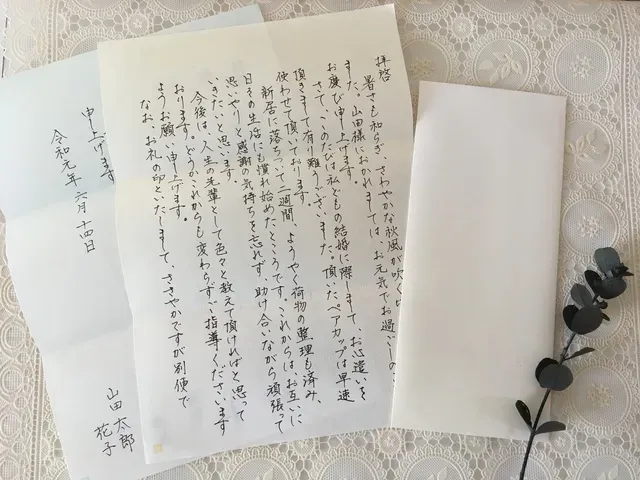 拝啓
暑さも和らぎ、さわやかな秋風が吹く
ました。山田様におかれましては、お元気でお過ごしの
お慶び申し上げます。
さて、このたびは私どもの結婚に際しまして、お心遣いを
頂きまして有り難うございました。頂いたペアカップは早速
使わせて頂いております。
新居に落ちついて二週間、ようやく荷物の整理も済み、
日々の生活にも慣れ始めたところです。これからは、お互いに
思いやりと感謝の気持ちを忘れず、助け合いながら頑張って
いきたいと思います。
今後は、人生の先輩として色々と教えて頂ければと思って
おります。どうかこれからも変わらずご指導くださいます
ようお願い申し上げます。
なお、お礼の印といたしまして、ささやかですが別便で
申し上げます
令和元年六月十四日
山田太郎
花子